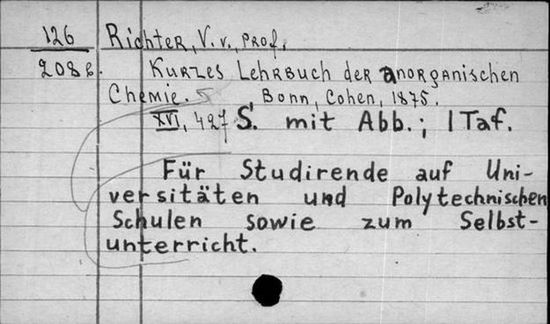 126 Richter, V. v., Prof.
208 b. Kurzes Lehrbuch der anorganischen
Chemie. Bonn, Cohen, 1875.
XVI, 427 S. mit Abb.; 1 Taf.
Für Studirende auf Uni-
versitäten und Polytechnischen
Schulen sowie zum Selbst-
unterricht.